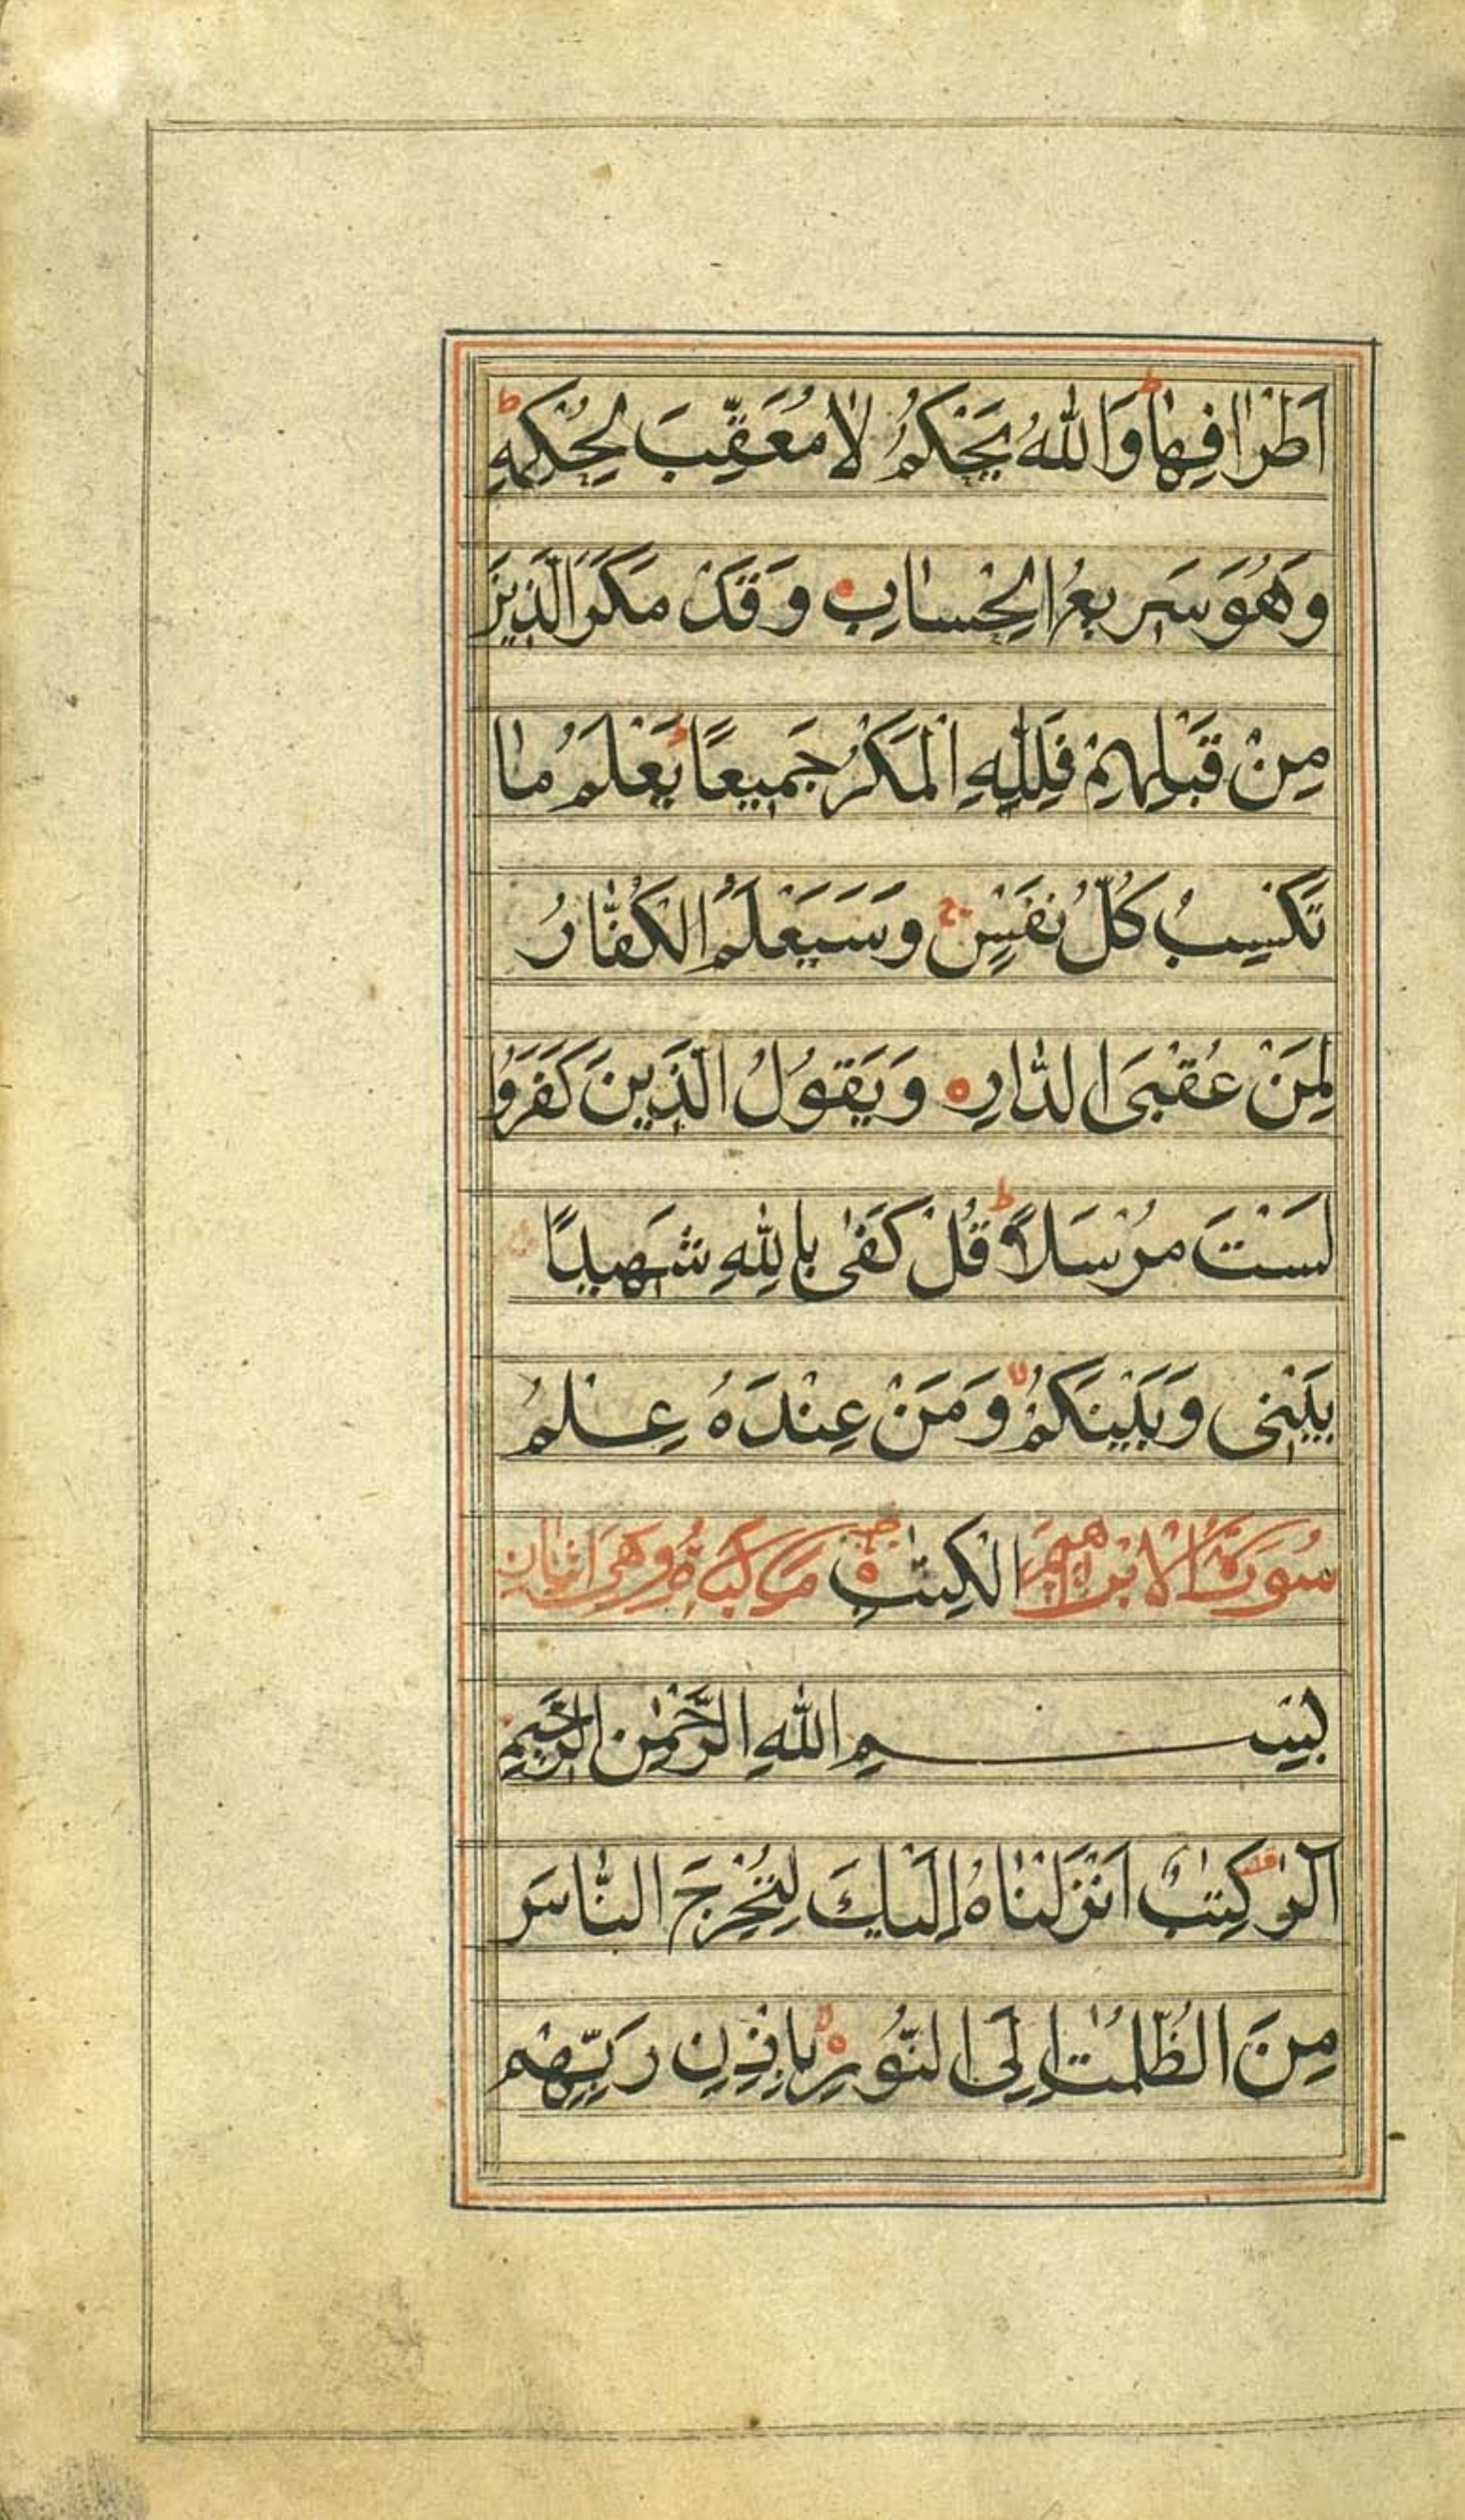 اَطْرَافِهَا ط وَاللّٰهُ يَحْكُمُ لَا مُعَقِّبَ لِحُكْمِهٖ ط
وَهُوَ سَرِيعُ الْحِسَابِ ه وَقَدْ مَكَرَ الَّذِينَ
مِنْ قَبْلِهِمْ فَلِلّٰهِ الْمَكْرُ جَمِيعًا ط يَعْلَمُ مَا
تَكْسِبُ كُلُّ نَفْسٍ ج وَسَيَعْلَمُ الْكُفَّارُ
لِمَنْ عُقْبَى الدَّارِ ه وَيَقُولُ الَّذِينَ كَفَرُوا
لَسْتَ مُرْسَلًا ط قُلْ كَفٰى بِاللّٰهِ شَهِيدًا
بَيْنِي وَبَيْنَكُمْ لا وَمَنْ عِنْدَهُ عِلْمُ
سُورَةُ الابْرٰهِيمَ الْكِتٰبِ ه مَكِّيَّةٌ وَهِيَ اثْنَانِ
بِسْمِ اللّٰهِ الرَّحْمٰنِ الرَّحِيمِ
الٓرٰ كِتٰبٌ اَنْزَلْنَاهُ اِلَيْكَ لِتُخْرِجَ النَّاسَ
مِنَ الظُّلُمٰتِ اِلَى النُّورِ ه بِاِذْنِ رَبِّهِمْ